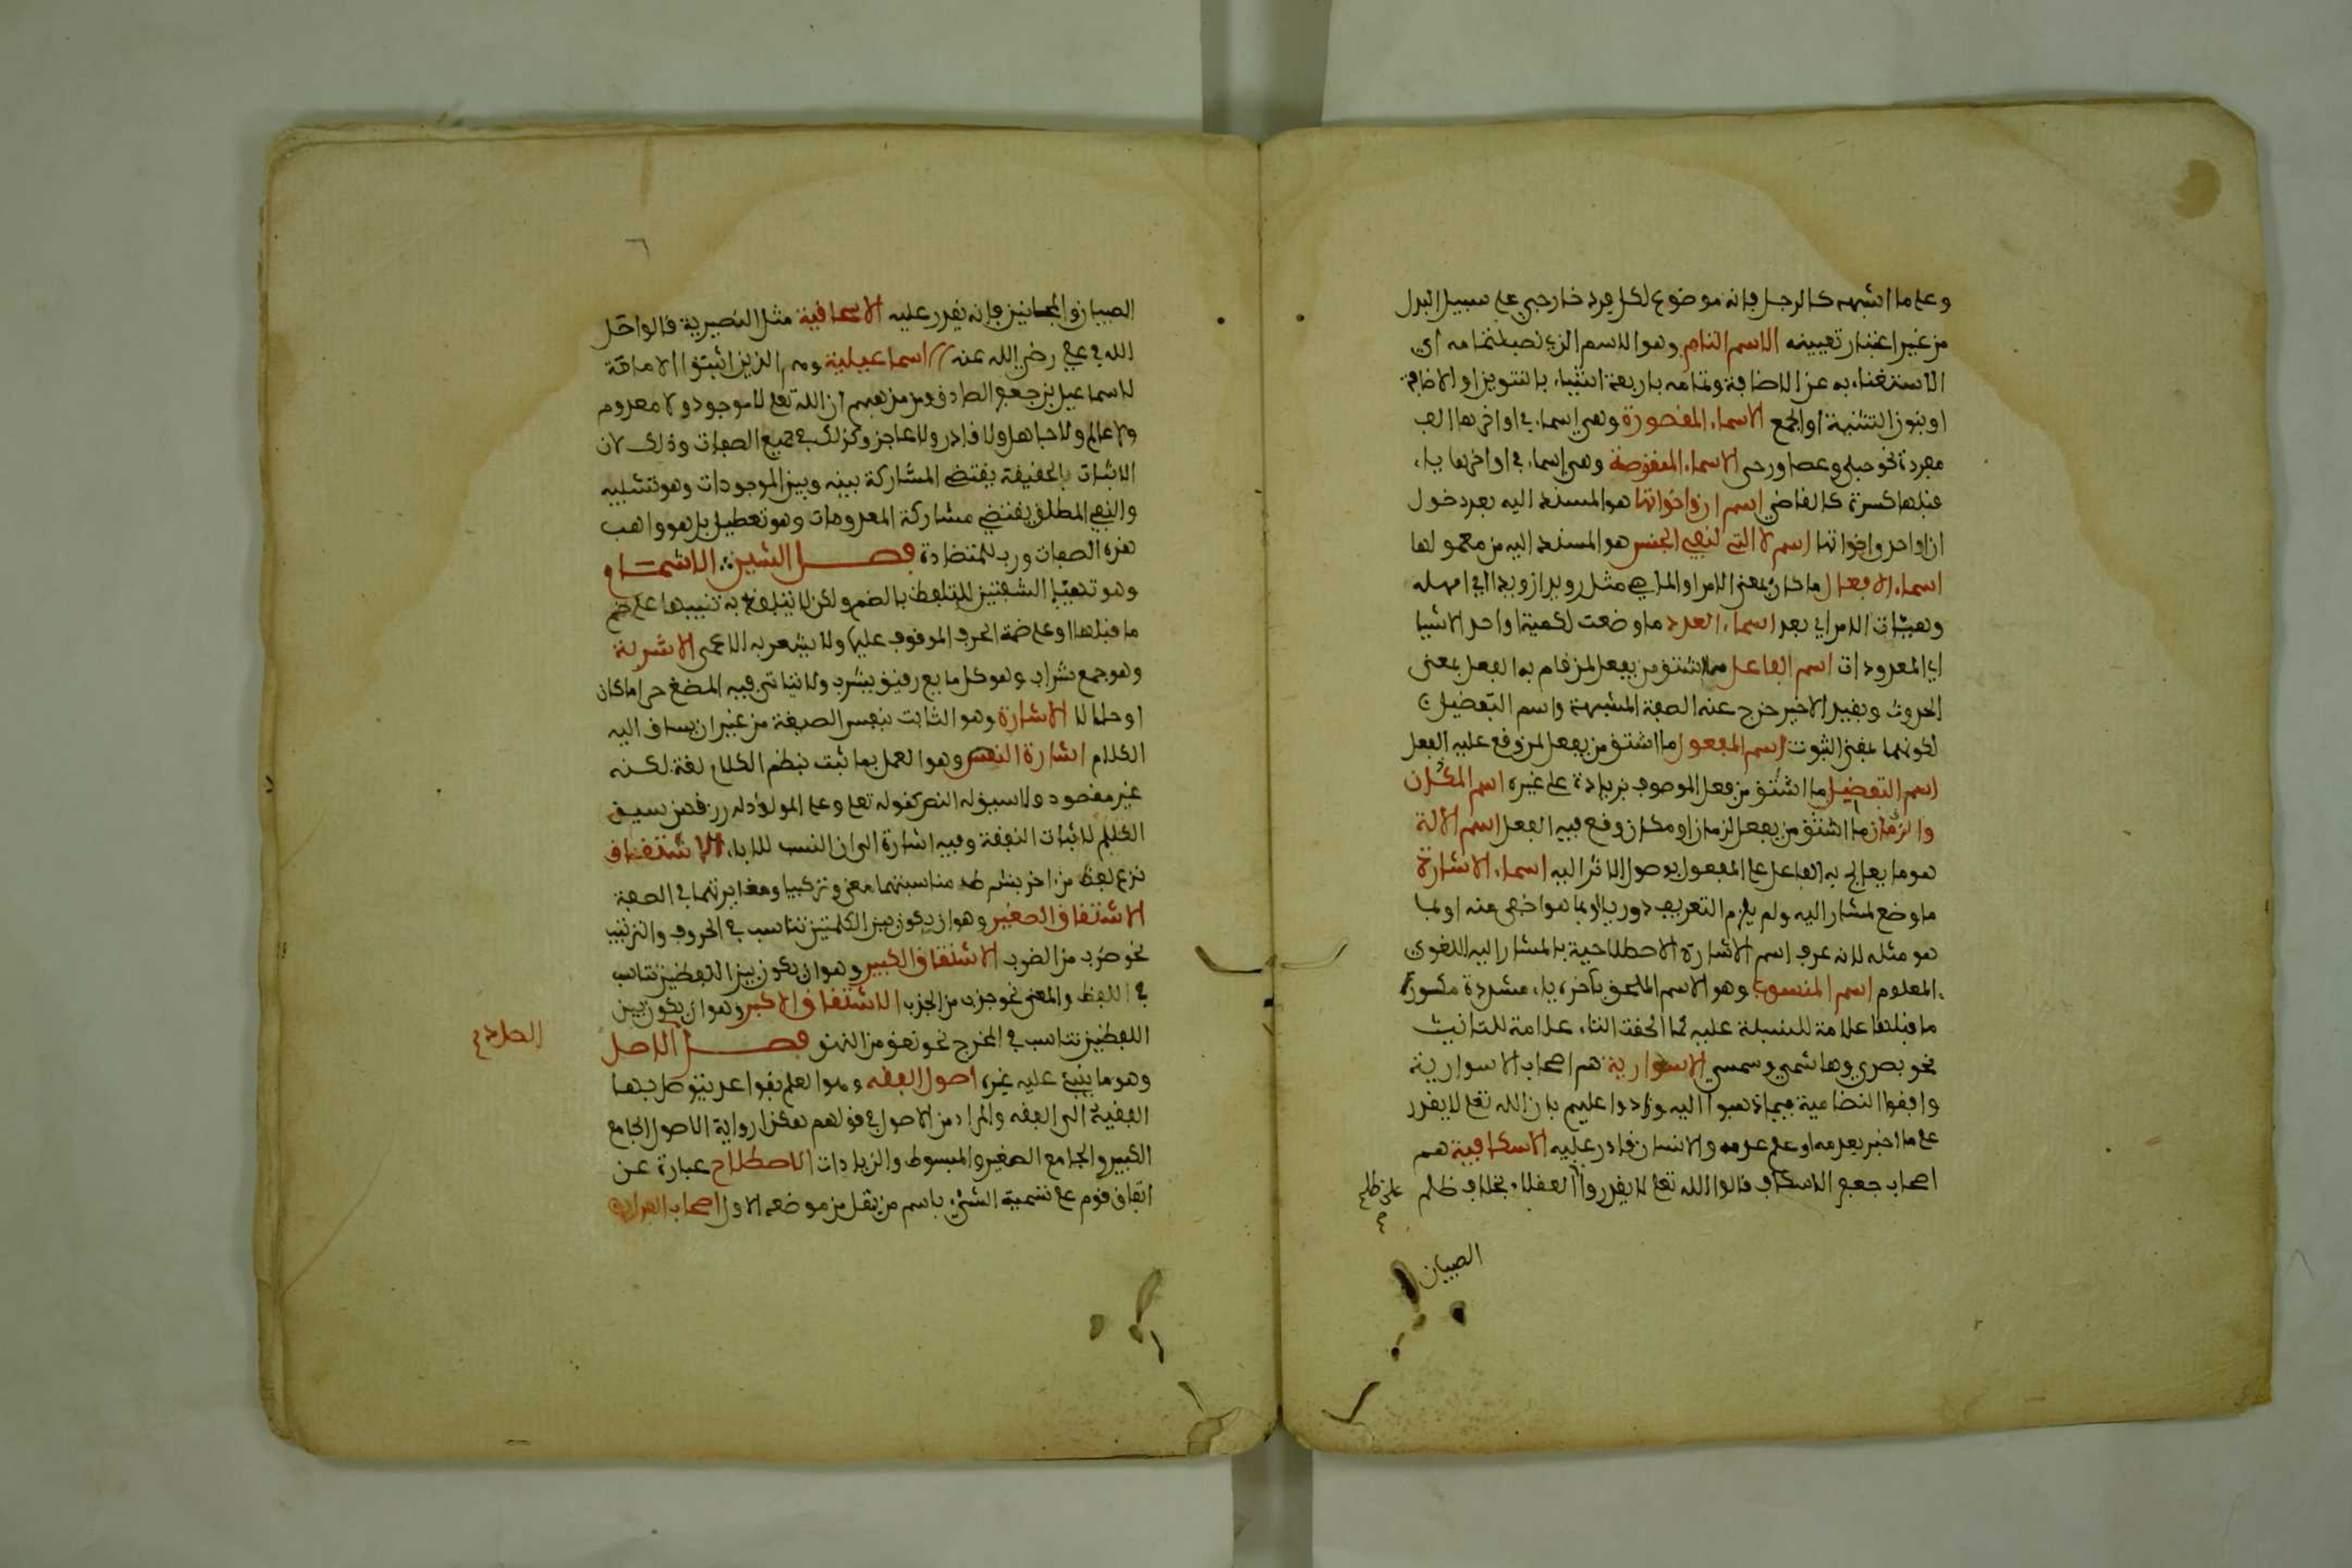 وعلى ما اشبهه كالرجل فإنه موضوع لكل فرد خارجي على سبيل البدل
من غير اعتبار تعيينه الاسم التام وهو الاسم الذي نصب لتمامه أي
الاستغناء به عن الاضافة وتمامه باربعة اشياء بالتنوين او الاضافة
او بنون التثنية او الجمع الاسماء المقصورة وهي اسماء في اواخرها الف
مفردة نحو حبلى وعصا ورحى الاسماء المنقوصة وهي اسماء في اواخرها ياء
قبلها كسرة كالقاضي اسم ان واخواتها هو المسند اليه بعد دخول
ان او احد واخواتها اسم لا التي لنفي الجنس هو المسند اليه من معمولها
اسماء الافعال ما كان بمعنى الامر او الماضي مثل رويد زيدا اي امهله
وهيهات الامر اي بعد اسماء العدد ما وضعت لكمية اواحد الاشيا
اي المعدودات اسم الفاعل ما اشتق من يفعل لمن قام به الفعل بمعنى
الحدوث وبقيد الاخير خرج عنه الصفة المشبهة واسم التفضيل
لكونهما بمعنى الثبوت اسم المفعول ما اشتق من يفعل لمن وقع عليه الفعل
اسم التفضيل ما اشتق من فعل الموصوف بزيادة على غيره اسم المكان
والزمان ما اشتق من يفعل لزمان او مكان وقع فيه الفعل اسم الالة
هو ما يعالج به الفاعل على المفعول بوصول الاثر اليه اسماء الاشارة
ما وضع لمشار اليه ولم يلزم التعريف دوريا او بما هو اخفى منه او بما
هو مثله لانه عرف اسم الاشارة الاصطلاحية بالمشار اليه اللغوي
المعلوم اسم المنسوب وهو الاسم الملحق بآخره ياء مشددة مكسورة
ما قبلها علامة للنسبة عليه كما الحقت التاء علامة للتانيث
نحو بصري وهاشمي وسمسي الاسوارية هم اصحاب الاسوارية
وافقوا النضامية فيما ذهبوا اليه وزادوا عليهم بان الله تعلى لا يقدر
على ما اخبر بعدمه او علم عدمه والانسان قادر عليه الاسكافية هم
اصحاب جعفر الاسكاف قالوا الله تعلى لا يقدر العقلاء بخلاف ظلم
على ظلم
الصبيان
الصبيان والمجانين فإنه يقدر عليه الاسحاقية مثل النصيرية قالوا حل
الله في علي رضي الله عنه اسماعيلية وهم الذين اثبتوا الامامة
لاسماعيل بن جعفر الصادق ومن مذهبهم ان الله تعلى لا موجود ولا معدوم
ولا عالم ولا جاهل ولا قادر ولا عاجز وكذلك في جميع الصفات وذلك لان
الاثبات الحقيقة يقتضي المشاركة بينه وبين الموجودات وهو تشبيه
والنفي المطلق يقتضي مشاركة المعدومات وهو تعطيل بل هو واهب
هذه الصفات ورب للمتضادة فصل الشين الاشمام
وهو تهيئة الشفتين للتلفظ بالضم ولكن لا يتلفظ به تنبيها على ضم
ما قبلها او على ضمة الحرف الموقوف عليها ولا يشعر به الاعمى الاشربة
وهو جمع شراب وهو كل مايع رقيق يشرب ولا يتاتى فيه المضغ حراما كان
او حلالا الاشارة وهو الثابت بنفس الصيغة من غير ان يساق اليه
الكلام اشارة النص وهو العمل بما ثبت بنظم الكلام لغة لكنه
غير مقصود ولا سيق له النص كقوله تعلى وعلى المولود له رزقهن سيق
الكلام لاثبات النفقة وفيه اشارة الى ان النسب للاباء الاشتقاق
نزع لفظ من اخر بشرط مناسبتهما معنى وتركيبا ومغايرتهما في الصيغة
الاشتقاق الصغير وهو ان يكون بين الكلمتين تناسب في الحروف والترتيب
نحو ضرب من الضرب الاشتقاق الكبير وهو ان يكون بين اللفظين تناسب
في اللفظ والمعنى نحو جزب من الجزب الاشتقاق الاكبر وهو ان يكون بين
اللفظين تناسب في المخرج نحو نعق من النهق فصل الاصل
وهو ما يبنى عليه غيره اصول الفقه وهو العلم بقواعد يتوصل بها
الفقيه الى الفقه والمراد من الاصول في قولهم هكذا رواية الاصول الجامع
الكبير والجامع الصغير والمبسوط والزيادات الاصطلاح عبارة عن
اتفاق قوم على تسمية الشيء باسم من ينقل من موضعه الاول اصحاب الفرائض